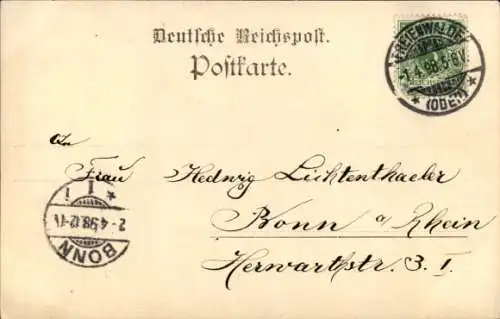 Deutsche Reichspost.
Postkarte.
FREIENWALDE
1.4.98.5-6N.
(ODER)
An
Frau Hedwig Lichtenthaeler
Bonn a/Rhein
Herwarthstr. 3. I.
BONN
2-4.98.12-1
1